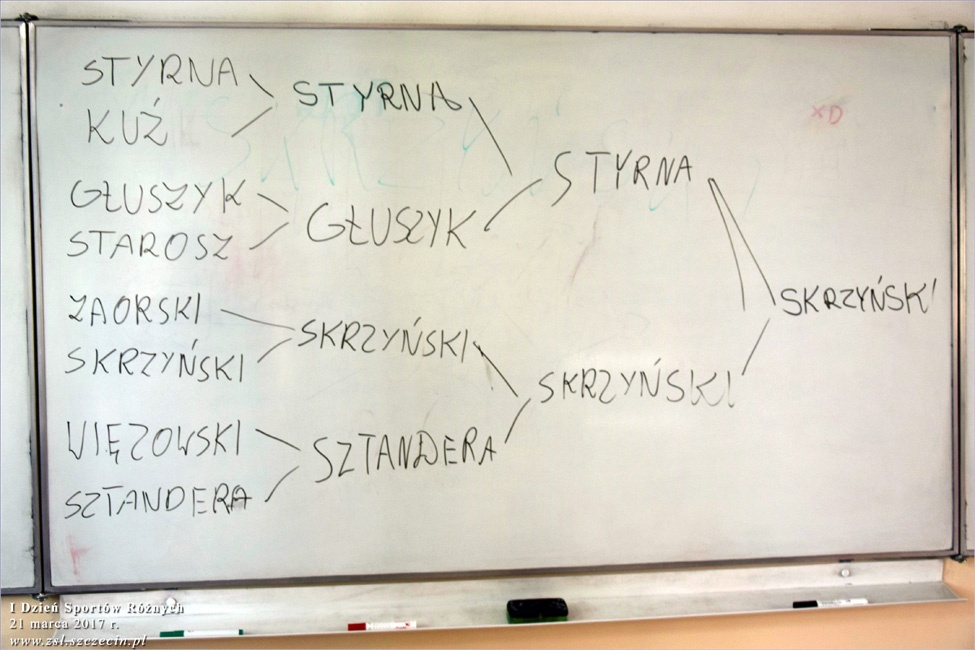 STYRNA
KUŹ
GŁUSZYK
STAROSZ
ZAORSKI
SKRZYŃSKI
WIĘZOWSKI
SZTANDERA
STYRNA
GŁUSZYK
SKRZYŃSKI
SZTANDERA
STYRNA
SKRZYŃSKI
SKRZYŃSKI
XD
I Dzień Sportów Różnych
21 marca 2017 r.
www.zsl.szczecin.pl